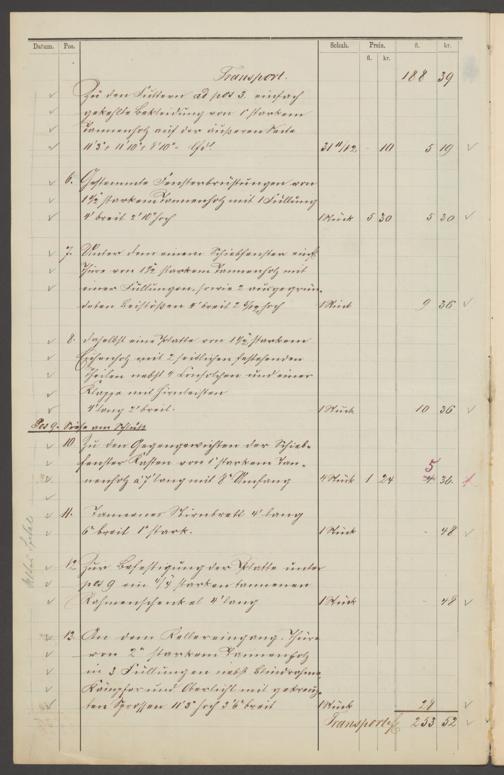 Datum. Pos. Schuh. Preis. fl. kr.
fl. kr.
Transport. 188 39
Zu den Futtern ad pos 3. einfach
gekehlte Bekleidung von 1" starkem
Tannenholz auf der äußeren Seite
31 11/12 - 10 5 19
6. Gestemmte Fensterbrüstungen von
starkem Tannenholz mit 1 Füllung
4' breit 2' 10" hoch 1 Stück 5 30 5 30
7. Unter dem einen Schiebfenster
Thüre von 1 1/2" starkem Tannenholz mit
einer Füllungen, sowie 2
breit hoch 1 Stück 9 36
8. Daselbst eine Platte von 1 1/2" starkem
Eichenholz mit 2 seitlichen feststehenden
Theilen nebst 4 und einer
Klappe mit Hirnleisten
4' lang 2' breit. 1 Stück 10 36
Pos 9. Siehe am Schluß
10. Zu den Gegengewichten der Schieb-
fenster Kasten von 1" starkem Tan-
5
nenholz à 7' lang mit 8" Umfang 4 Stück 1 24 30
11. Tannenes Stirnbrett 4' lang
6" breit 1" stark. 1 Stück - 48
12. Zur Befestigung der Platte unter
pos 9 ein starken tannenen
Rahmenschenkel 4' lang 1 Stück - 48
13. An dem Kellereingang. Thüre
von 2" starkem Tannenholz
in 3 Füllungen nebst Blindrahmen
Kämpfer und Oberlicht mit
ten Sprossen 11' 3" hoch 3' 6" breit 1 Stück 28
Transport fl 253 52